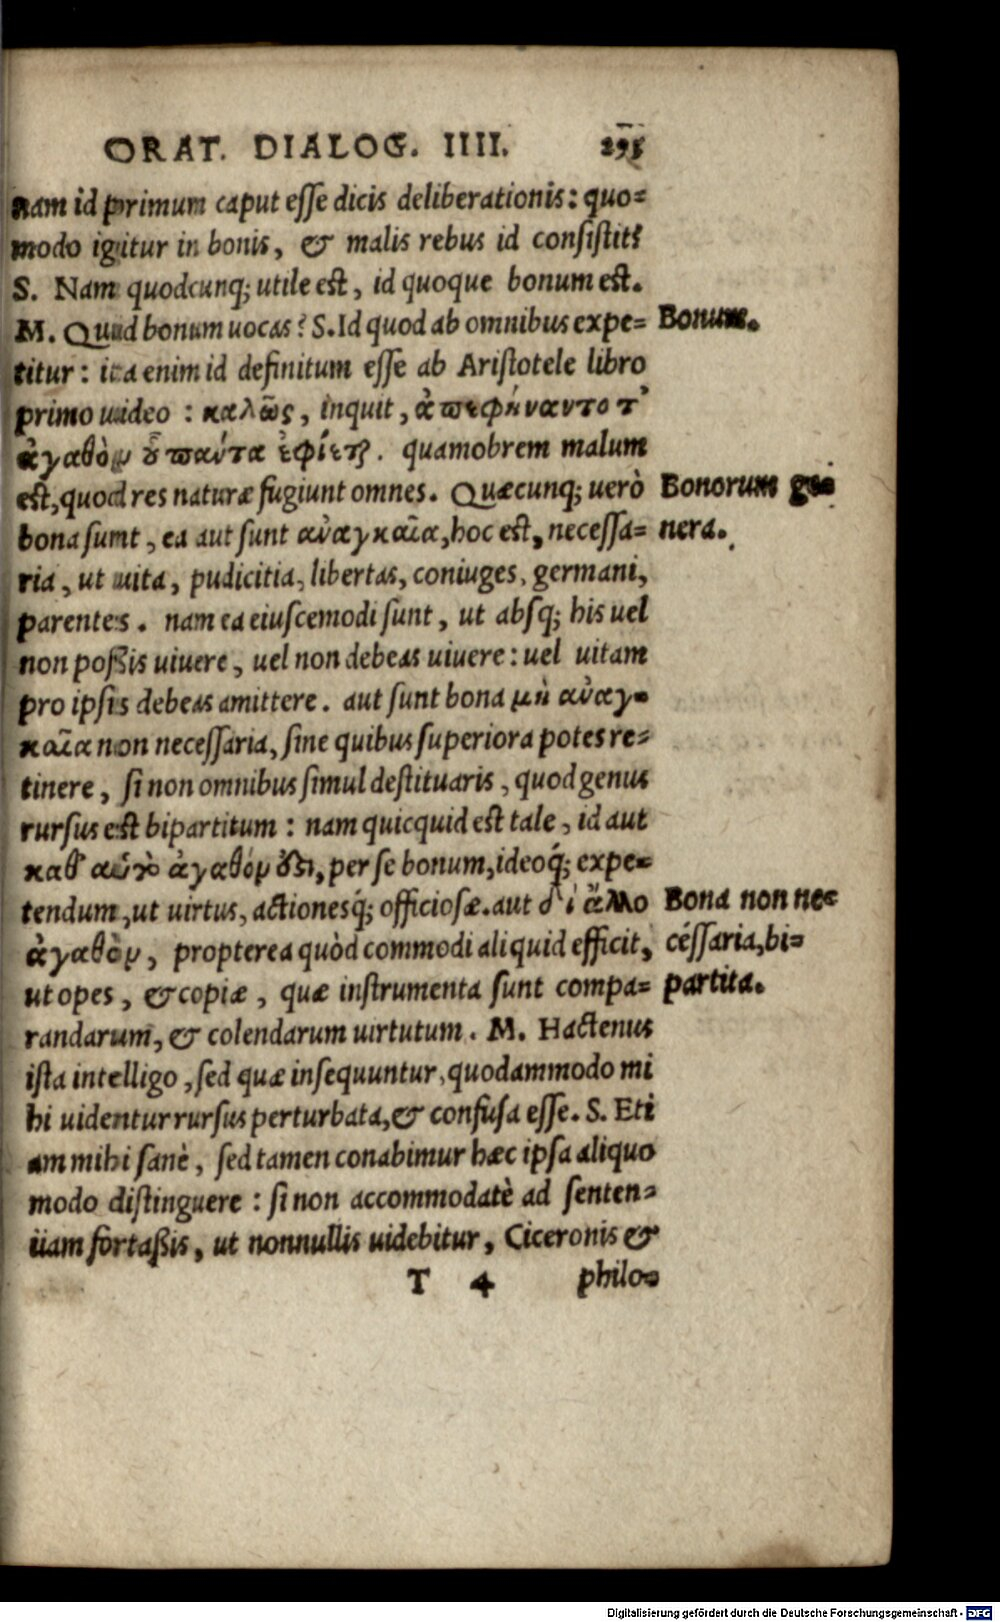 ORAT. DIALOG. IIII. 295
nam id primum caput esse dicis deliberationis: quo=
modo igitur in bonis, & malis rebus id consistit?
S. Nam quodcunq; utile est, id quoque bonum est.
M. Quid bonum uocas? S. Id quod ab omnibus expe=
Bonum.
titur: ita enim id definitum esse ab Aristotele libro
primo uideo: καλῶς, inquit, ἀπεφήναντο τ'
ἀγαθὸν ὃ πάντα ἐφίεται. quamobrem malum
est, quod res naturæ fugiunt omnes. Quæcunq; uerò
Bonorum ge=
bona sunt, ea aut sunt ἀναγκαῖα, hoc est, necessa=
nera.
ria, ut uita, pudicitia, libertas, coniuges, germani,
parentes. nam ea eiuscemodi sunt, ut absq; his uel
non poßis uiuere, uel non debeas uiuere: uel uitam
pro ipsis debeas amittere. aut sunt bona μὴ ἀναγ=
καῖα non necessaria, sine quibus superiora potes re=
tinere, si non omnibus simul destituaris, quod genus
rursus est bipartitum: nam quicquid est tale, id aut
καθ' αὑτὸ ἀγαθόν ἐστι, per se bonum, ideoq́; expe=
tendum, ut uirtus, actionesq́; officiosæ. aut δι' ἄλλο
Bona non ne=
ἀγαθὸν, propterea quòd commodi aliquid efficit,
céssaria, bi=
ut opes, & copiæ, quæ instrumenta sunt compa=
partita.
randarum, & colendarum uirtutum. M. Hactenus
ista intelligo, sed quæ insequuntur, quodammodo mi
hi uidentur rursus perturbata, & confusa esse. S. Eti
am mihi sanè, sed tamen conabimur hæc ipsa aliquo
modo distinguere: si non accommodatè ad senten=
tiam fortaßis, ut nonnullis uidebitur, Ciceronis &
T 4 philo=
Digitalisierung gefördert durch die Deutsche Forschungsgemeinschaft - DFG